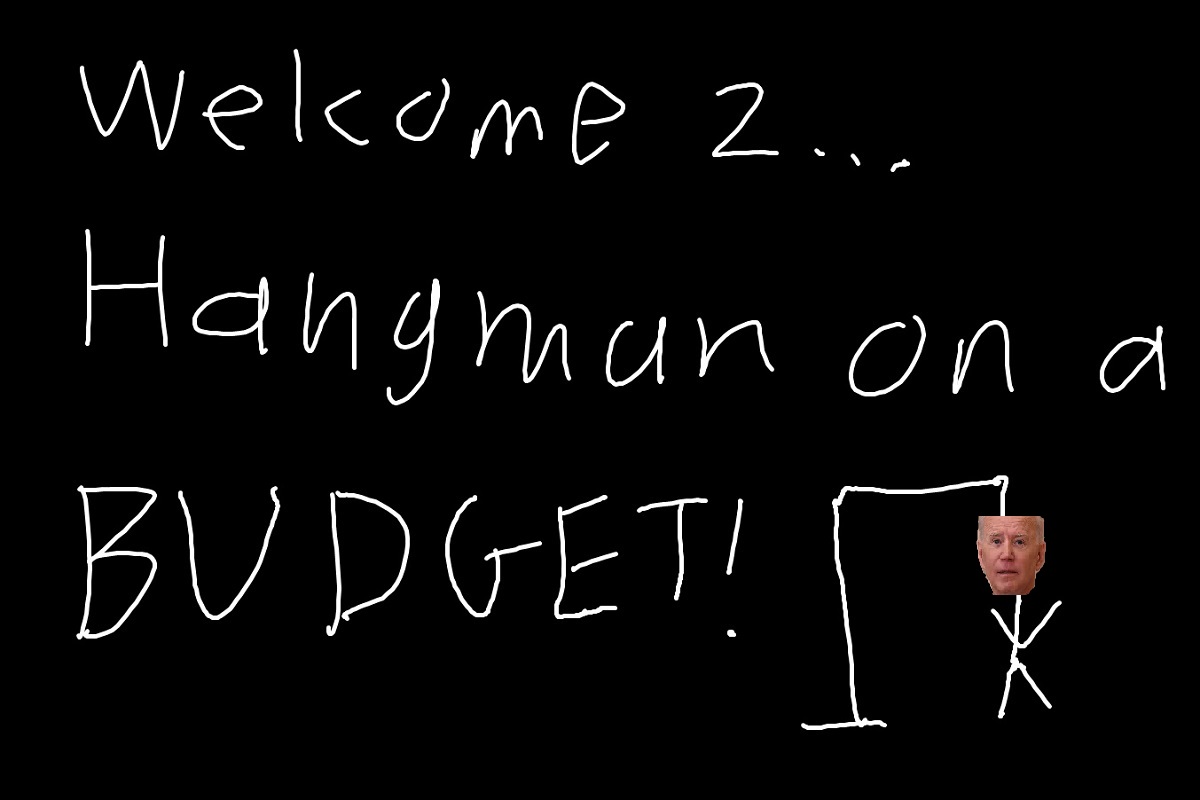 Welcome 2...
Hangman on a
BUDGET!